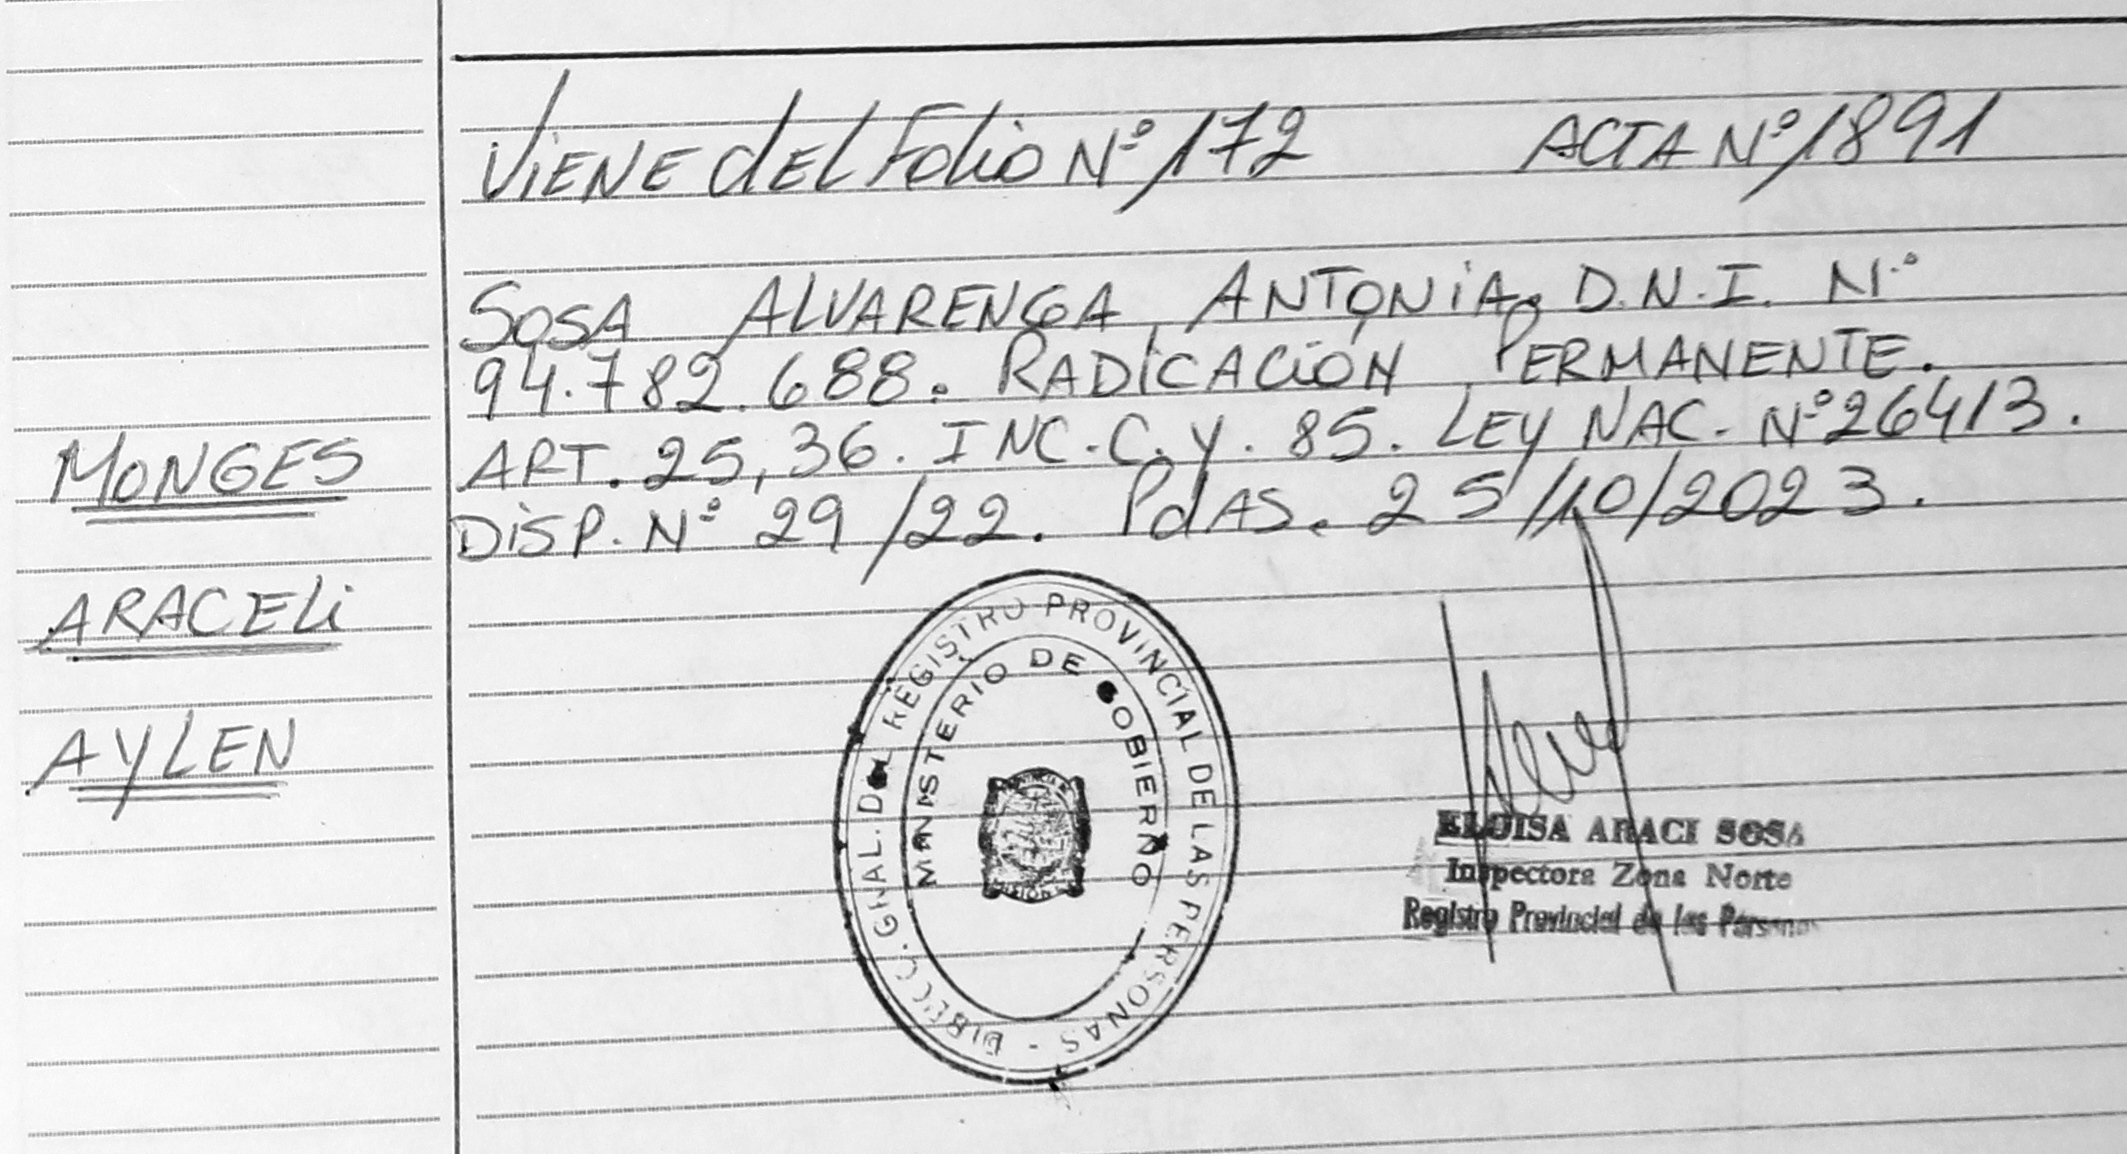 ViENE dEL Folio N° 172 ACTA N° 1891
SOSA ALVARENGA, ANTONiA. D.N.I. N°
94.782.688. RADiCACiÓN PERMANENTE.
ART. 25, 36. INC.C.Y. 85. LEY NAC. N° 26413.
DiSP. N° 29/22. PdAS. 25/10/2023.
MONGES
ARACELi
AYLEN
DIRECC. GRAL. DEL REGISTRO PROVINCIAL DE LAS PERSONAS -
MINISTERIO DE GOBIERNO
ELOISA ARACI SOSA
Inspectora Zona Norte
Registro Provincial de las Personas